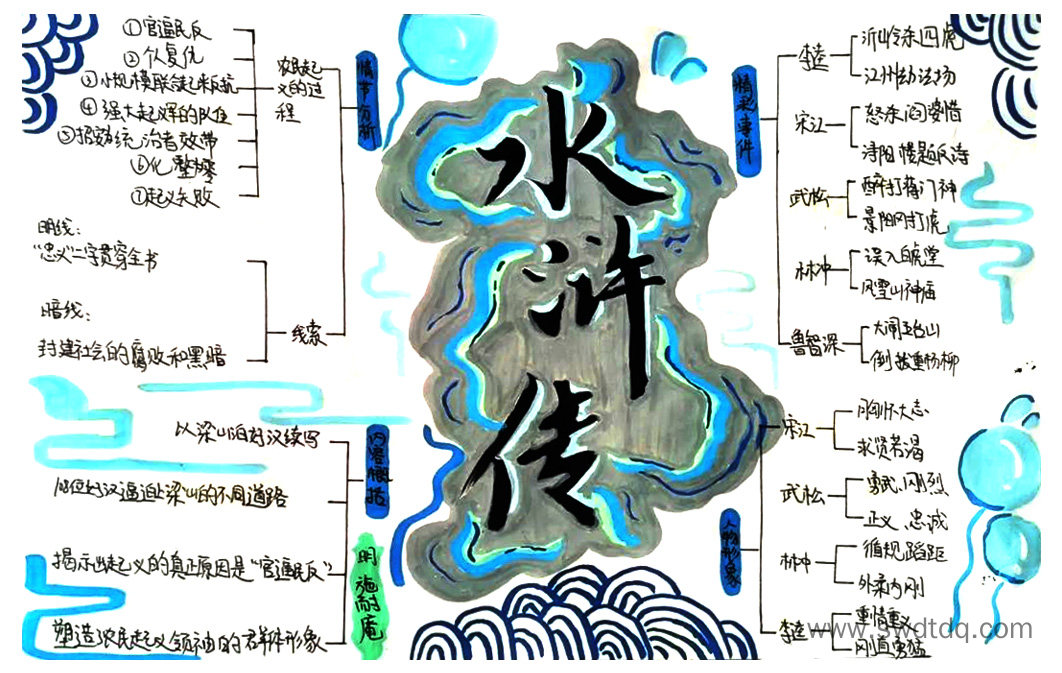 水浒传
明 施耐庵
情节分析
农民起
义的过
程
①官逼民反
②个复仇
③小规模联合起来反抗
④强大起义军的队伍
⑥化整
⑦起义失败
线索
明线：
“忠义”二字贯穿全书
暗线：
封建社会的腐败和黑暗
内容概括
以梁山泊好汉续写
108位好汉逼迫上梁山的不同道路
揭示出起义的真正原因是“官逼民反”
塑造农民起义领袖的群体形象
精彩事件
李逵
沂岭杀四虎
江州劫法场
宋江
怒杀阎婆惜
浔阳楼题反诗
武松
醉打蒋门神
景阳冈打虎
林冲
误入白虎堂
风雪山神庙
鲁智深
大闹五台山
倒拔垂杨柳
人物形象
宋江
胸怀大志
求贤若渴
武松
勇武刚烈
正义、忠诚
林冲
循规蹈距
外柔内刚
李逵
重情重义
刚直勇猛
www.swdtdq.com